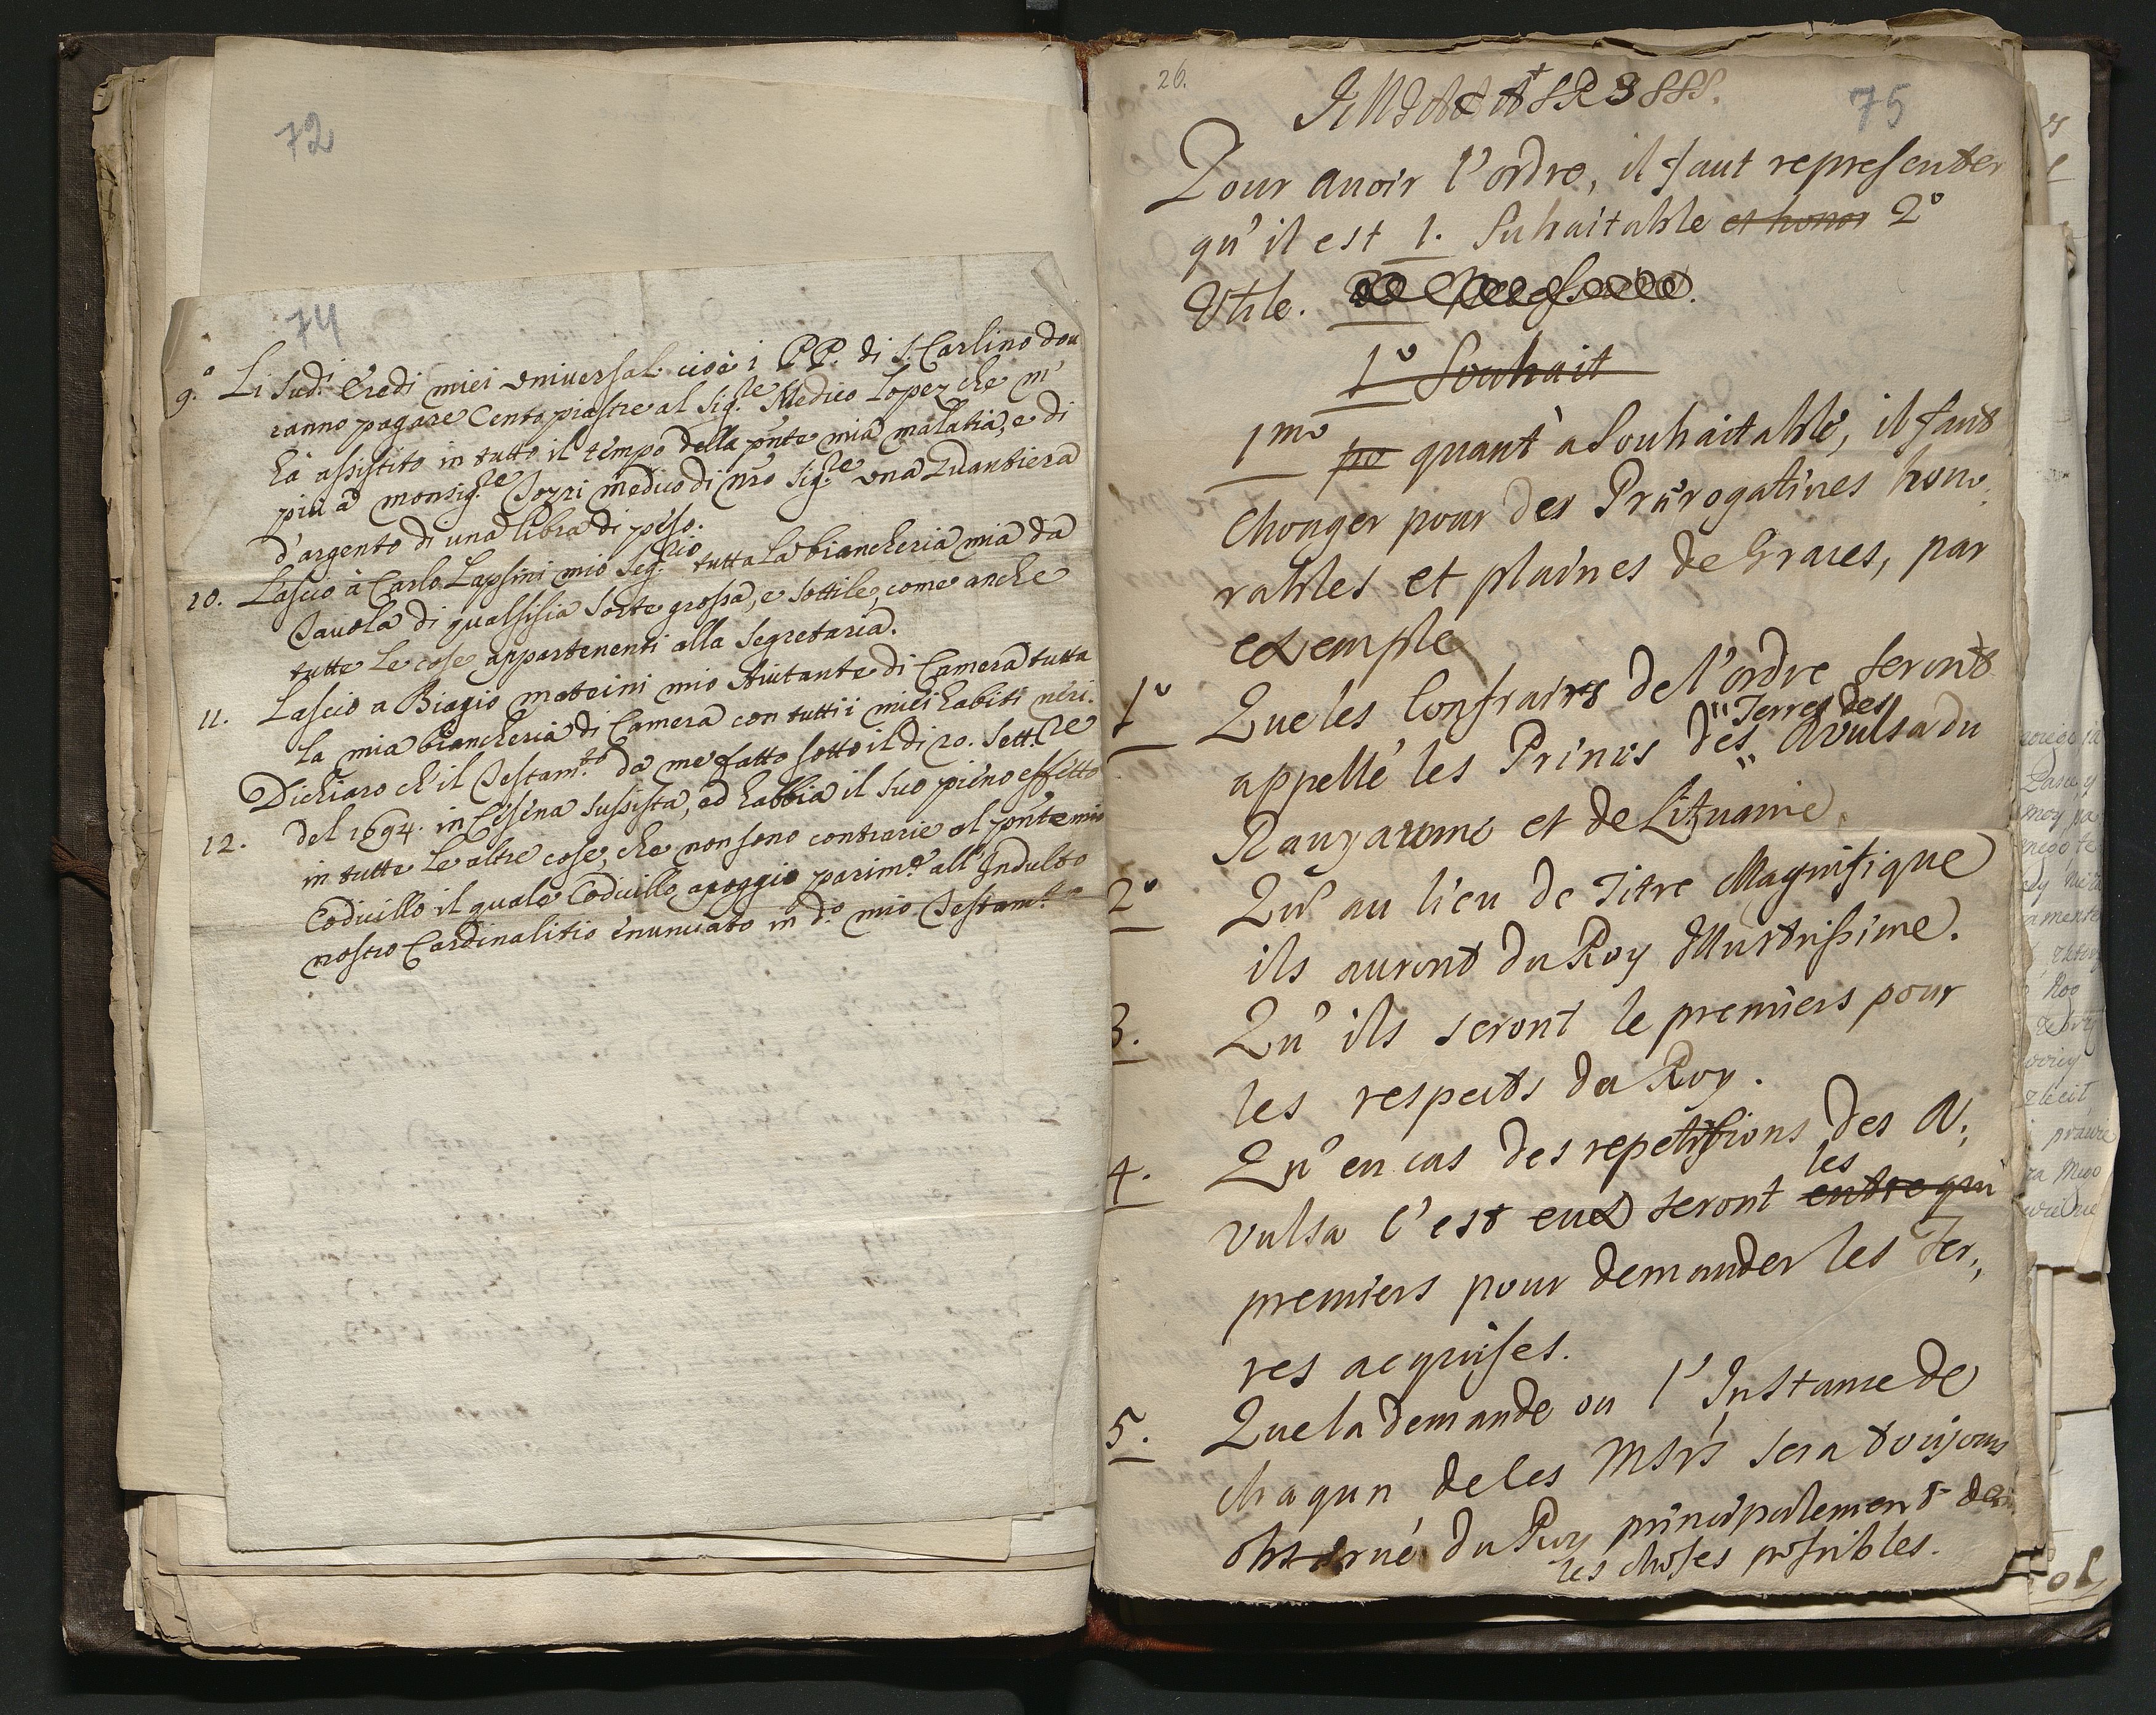 72
74
9.° Li sud.i Eredi miei vniuersal. cioè i PP. di S. Carlino dou
ranno pagare Cento piastre al Sig.re Medico Lopez che m'
hà assistito in tutto il tempo della pñte mia malatia, e di
piu à monsig.re Tozzi medico di nr̃o Sig.re vna Guantiera
d'argento di una libra di peso.
10. Lascio à Carlo Lapsini mio Seg.rio tutta la biancheria mia da
Tauola di qualsisia sorte grossa, e sottile, come anche
tutte le cose appartenenti alla segretaria.
11. Lascio a Biagio mateini mio Aiutante di Camera tutta
la mia biancheria di Camera con tutti i miei habiti neri.
Dichiaro ch'il Testam.to da me fatto sotto il di 20. Sett.re
12. del 1694. in Cesena sussista, ed habbia il suo pieno effetto
in tutte le altre cose, che non sono contrarie al pñte mio
Codicillo il quale Codicillo apoggio parim.te all'Indulto
nostro Cardinalitio enunciato in d.o mio Testam.to
26.
75
Pour auoir l'ordre, il faut representer
qu'il est 1. Suhaitable et honor 2°
Vtile.
1° Souhait
1mo po quant à Souhaitable, il faut
chonger pour des Prärogatives hono,
rables et plaines de Graces, par
exemple
1° Que les Confraires de l'ordre seront
appellé les Princes des " Terres des " Avulsa du
Royaume et de Lituanie.
2° Qu' au lieu de Titre Magnifique
ils auront du Roy Illustrissime.
3. Qu' ils seront le premiers pour
les respects du Roy.
4. Qu' en cas des repetitions des A,
vulsa c'est eux seront entre qui les
premiers pour demander les Ter,
res acquises.
5. Que la demande ou l'Instance de
chaqun de les Msrs sera toujours
observé du Roy principalement dans
les choses possibles.